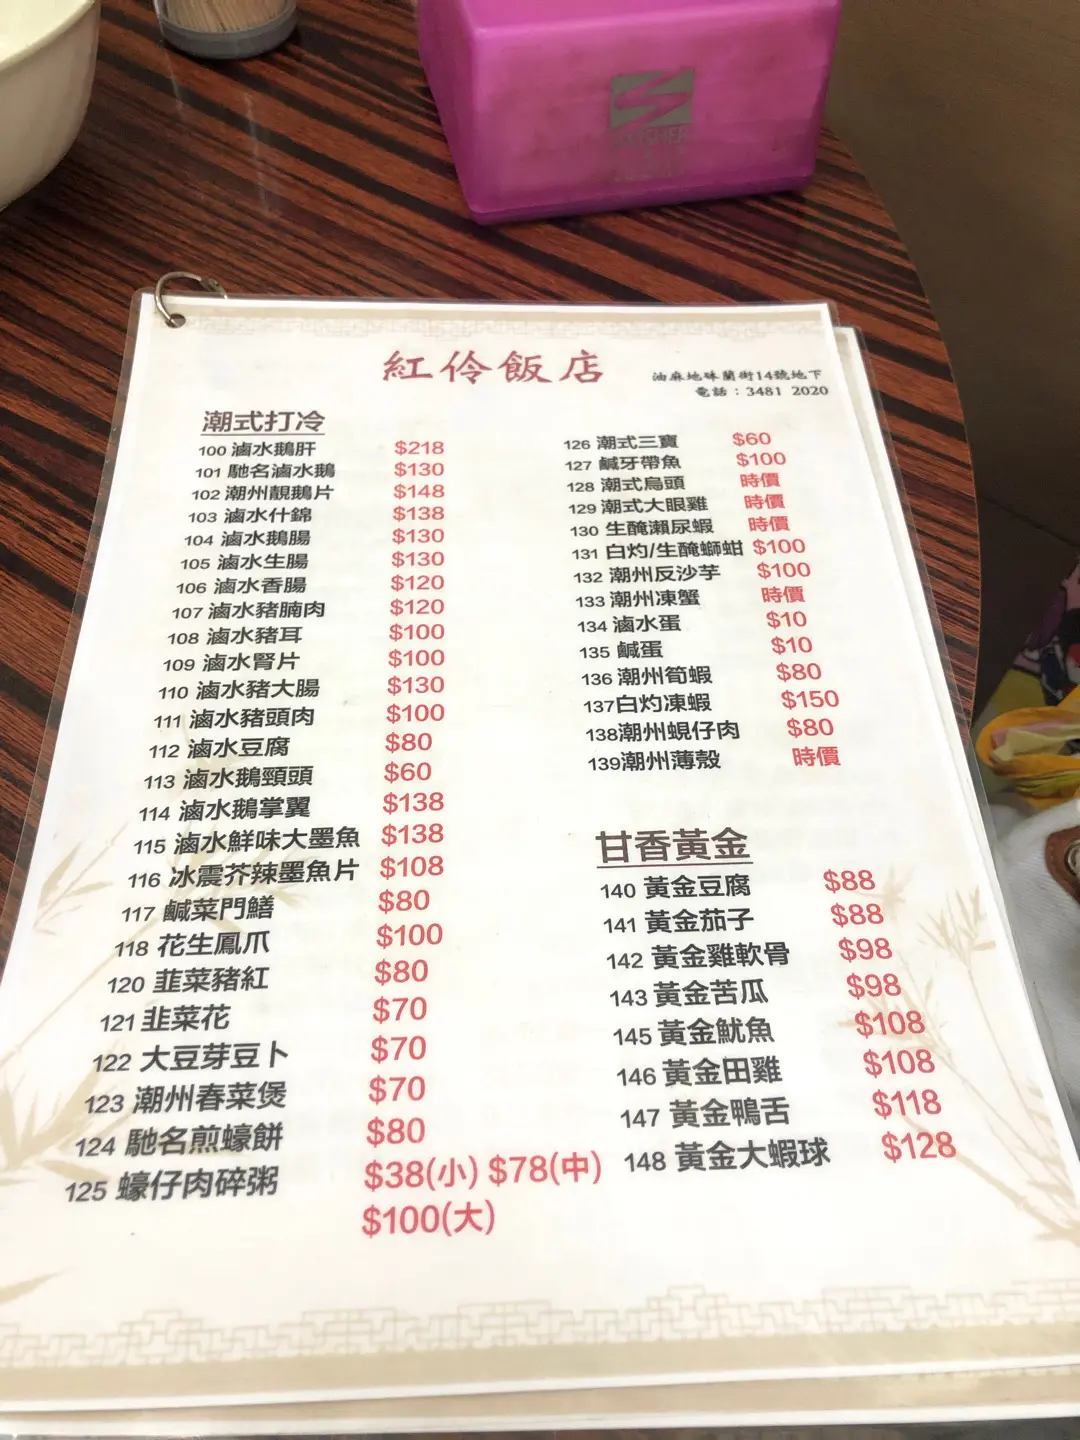 紅伶飯店
油麻地砵蘭街14號地下
電話：3481 2020
潮式打冷
100 滷水鵝肝 $218
101 馳名滷水鵝 $130
102 潮州靚鵝片 $148
103 滷水什錦 $138
104 滷水鵝腸 $130
105 滷水生腸 $130
106 滷水香腸 $120
107 滷水豬腩肉 $120
108 滷水豬耳 $100
109 滷水腎片 $100
110 滷水豬大腸 $130
111 滷水豬頭肉 $100
112 滷水豆腐 $80
113 滷水鵝頸頭 $60
114 滷水鵝掌翼 $138
115 滷水鮮味大墨魚 $138
116 冰震芥辣墨魚片 $108
117 鹹菜門鱔 $80
118 花生鳳爪 $100
120 韭菜豬紅 $80
121 韭菜花 $70
122 大豆芽豆卜 $70
123 潮州春菜煲 $70
124 馳名煎蠔餅 $80
125 蠔仔肉碎粥 $38(小) $78(中)
$100(大)
126 潮式三寶 $60
127 鹹牙帶魚 $100
128 潮式烏頭 時價
129 潮式大眼雞 時價
130 生醃瀨尿蝦 時價
131 白灼/生醃螄蚶 $100
132 潮州反沙芋 $100
133 潮州凍蟹 時價
134 滷水蛋 $10
135 鹹蛋 $10
136 潮州筍蝦 $80
137白灼凍蝦 $150
138潮州蜆仔肉 $80
139潮州薄殼 時價
甘香黃金
140 黃金豆腐 $88
141 黃金茄子 $88
142 黃金雞軟骨 $98
143 黃金苦瓜 $98
145 黃金魷魚 $108
146 黃金田雞 $108
147 黃金鴨舌 $118
148 黃金大蝦球 $128